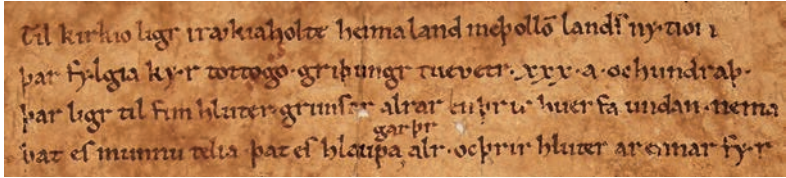 Til kirkio ligr i rækiaholte heimaland meþ ollō landſ ny·tiom
þar fylgia ky·r tottogo·griþungr tuevetr·xxx·a·oc hundraþ·
þar ligr til fim hluter·grimsar alrar en þrir huerfa undan·nema
þat eſ munnu telia·þat eſ hlaupa garþr alr·oc þrir hluter ar ennar fy·r